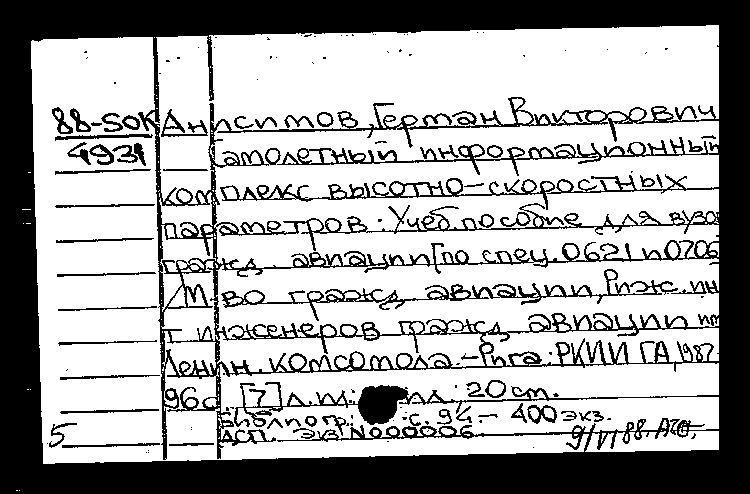 88-5OK Анисимов, Герман Викторович
4931 Самолетный информационный
комплекс высотно-скоростных
параметров: Учеб. пособие для вузо
гражд. авиации [по спец. 0621 и 0706
/М-во гражд. авиации, Риж. ин-
т инженеров гражд. авиации им.
Ленин. комсомола. - Рига: РКИИ ГА, 1987-
96с. [7] л. ил.: ил.; 20 см.
Библиогр.: с. 94- 400 экз.
5 АСП. ЭКЗ N000006. 9/VI 88.